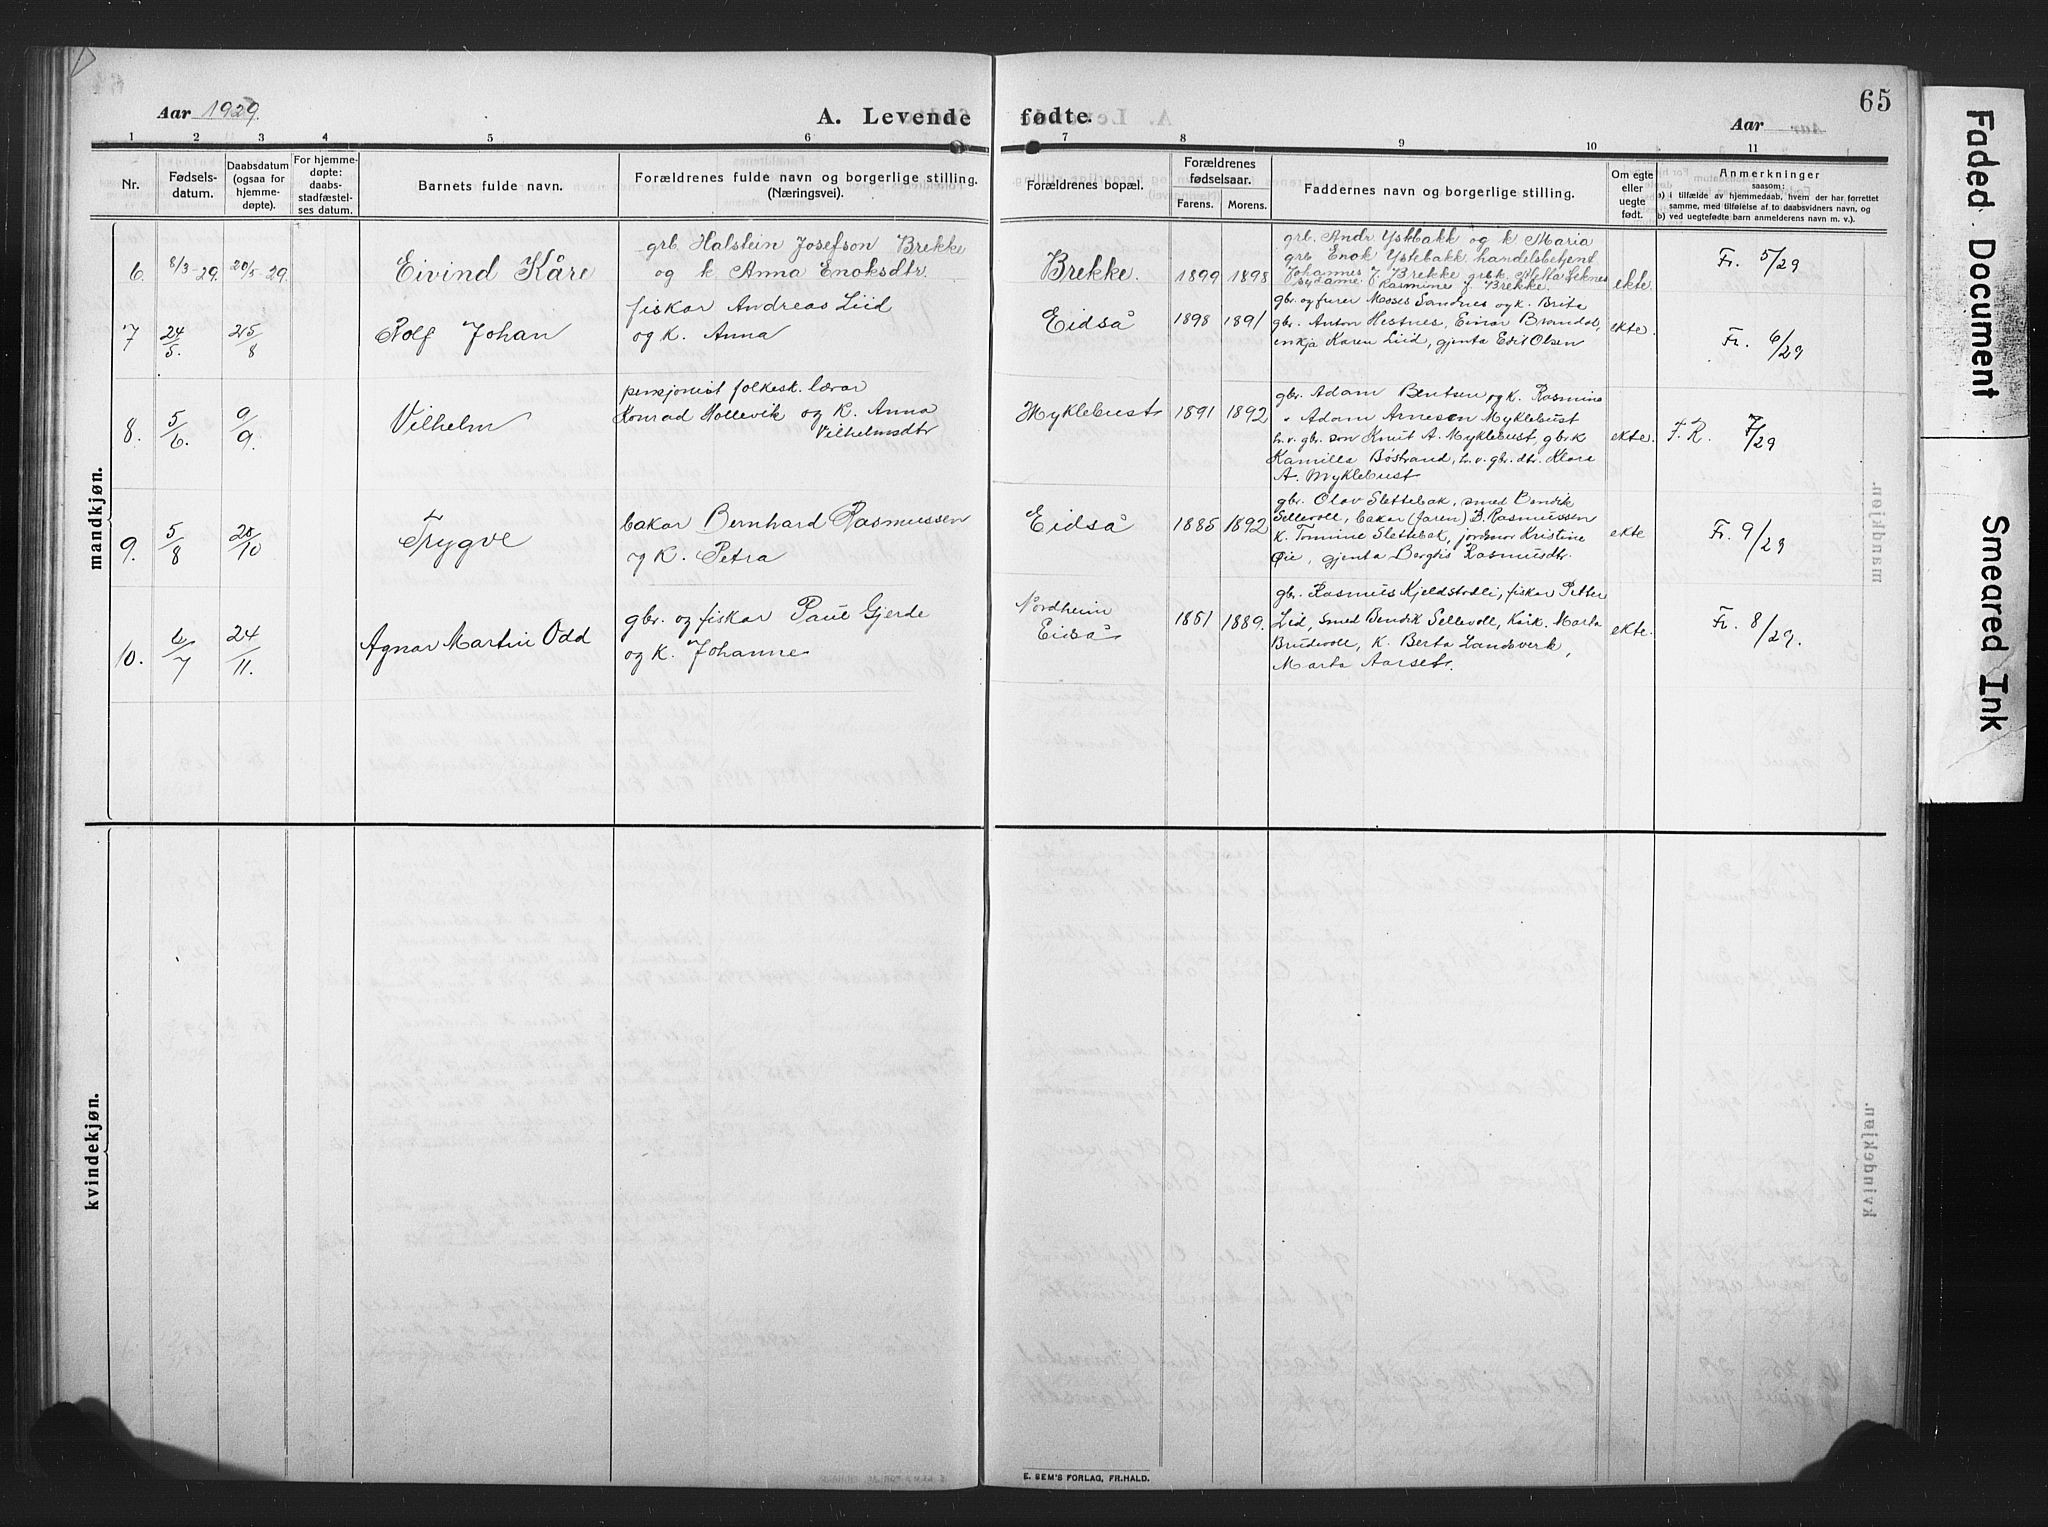 65
Aar 1929.
A. Levende fødte.
Aar
1 2 3 4 5 6 7 8 9 10 11
Nr.
Fødsels-
datum.
Daabsdatum
(ogsaa for
hjemme-
døpte).
For hjemme-
døpte:
daabs-
stadfæstel-
ses datum.
Barnets fulde navn.
Forældrenes fulde navn og borgerlige stilling.
(Næringsvei).
Forældrenes bopæl.
Forældrenes
fødselsaar.
Farens. Morens.
Faddernes navn og borgerlige stilling.
Om egte
eller
uegte
født.
Anmerkninger
saasom:
a) i tilfælde av hjemmedaab, hvem der har forrettet
samme, med tilføielse af to daabsvidners navn, og
b) ved uegtefødte barn anmelderens navn m. v.).
mandkjøn.
6. 8/3-29. 20/5-29
Eivind Kåre
grb. Halstein Josefson Brekke
og k. Anna Enoksdtr.
Brekke.
1899 1898
grb. Andr Ystebakk og k Maria
grb Enok Ystebakk handelsbetjent
Johannes J. Brekke grbk. Aletta Seknes
sydame Rasmine J. Brekke.
ekte.
Fr. 5/29
7 24/5. 25/8
Rolf Johan
fiskar Andreas Liid
og k. Anna
Eidså
1898 1891
gbr. og furer Moses Sandnes og k. Brita
gbr. Anton Hestnes, Einar Brandal,
enkja Karen Liid, gjenta Edit Olsen
ekte.
Fr. 6/29
8. 5/6. 9/9.
Vilhelm
pensjonist folkesk. lærar
Konrad Hollevik og k. Anna
Vilhelmsdtr
Myklebust
1891 1892
gbr. Adam Bentsen og k. Rasmine
" Adam Arnesen Myklebust
h.v. gbr. son Knut A. Myklebust, gbr. k
Kamilla Bøstrand, h.v. gbr. dtr. Klara
A. Myklebust
ekte.
F. R. 7/29
9. 5/8 20/10
Trygve
bakar Bernhard Rasmussen
og k. Petra
Eidså
1885 1892
gbr. Olav Slettebak, smed Bendik
Sellevoll, bakar (faren) B. Rasmussen
k. Tomine Slettebak, jordmor Kristine
Øie, gjenta Bergtis Rasmusdtr.
ekte
Fr. 9/29
10. 6/7 24/11.
Agnar Martin Odd
gbr. og fiskar Paul Gjerde
og k. Johanne
Nordheim
Eidså
1881 1889.
gb. Rasmus Kjeldstadli, fiskar Petter
Lid, smed Bendik Sellevoll, k. Marta
Brudevoll, k. Berta Landsverk,
Marta Aarset.
ekte.
Fr. 8/29.
kvindekjøn.
E. SEM'S FORLAG, FR.HALD.
Faded Document
Smeared Ink